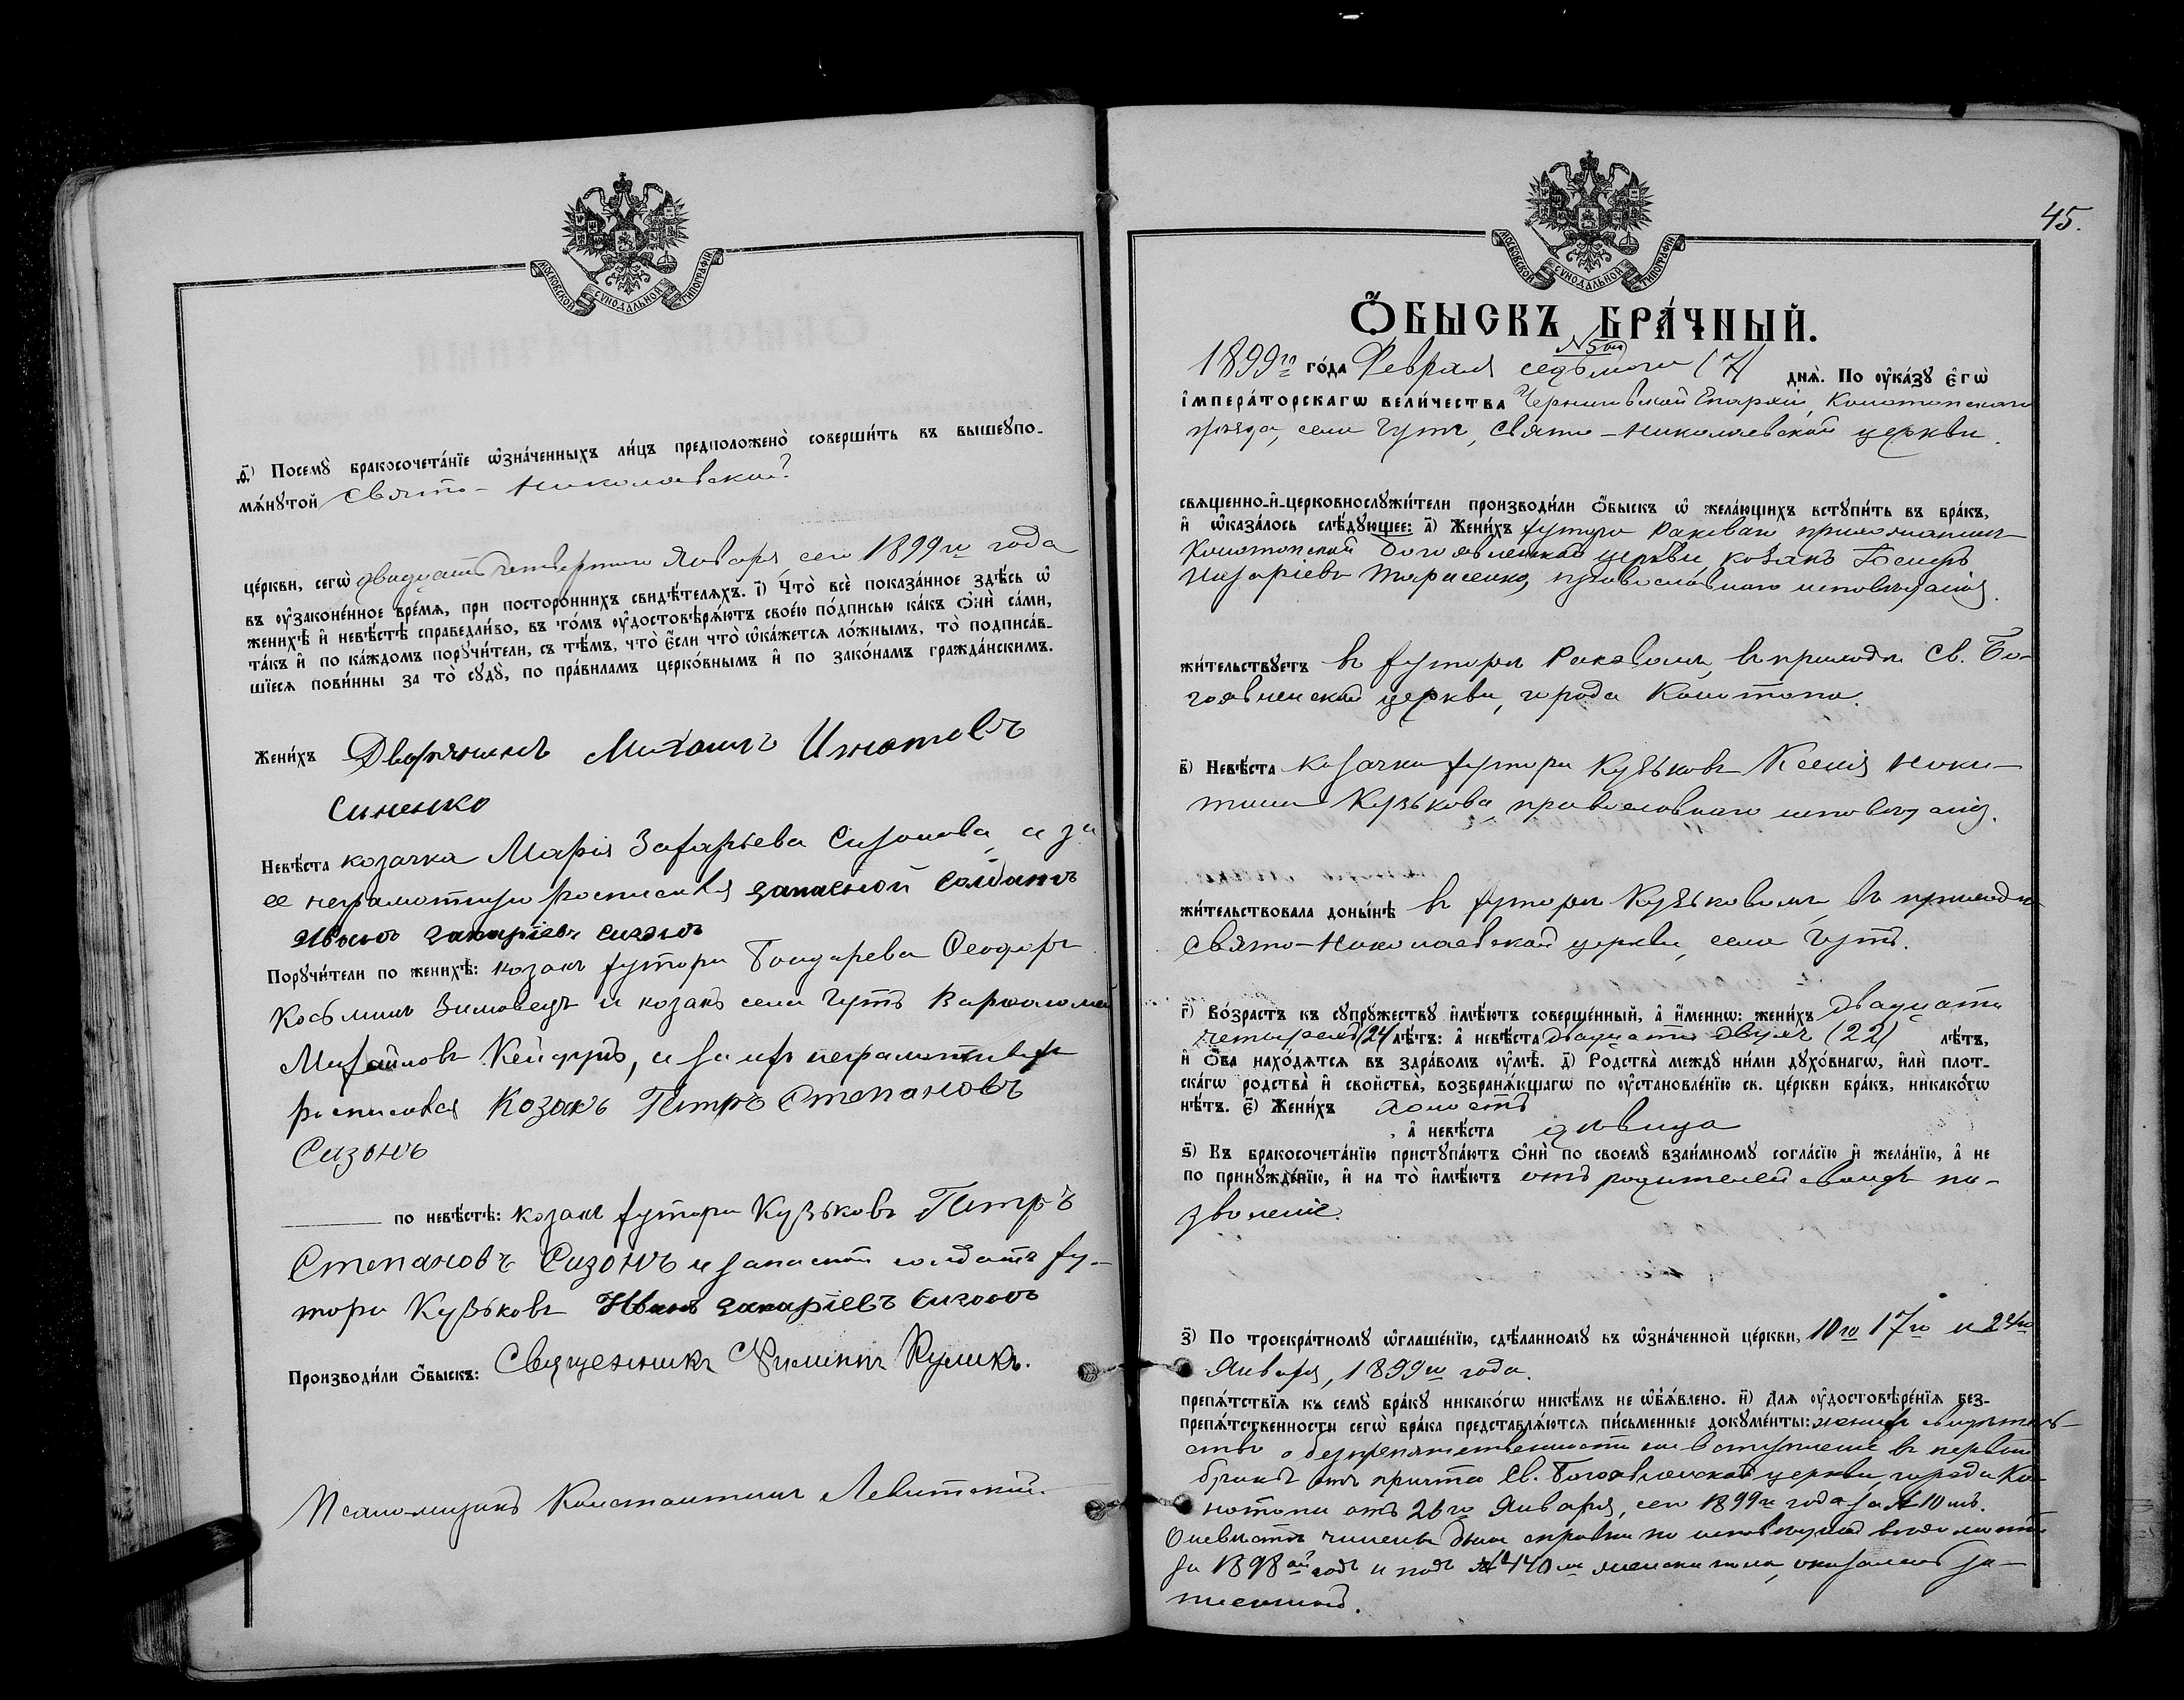 МОСКОВСКОЙ СѴНОДАЛЬНОЙ ТИПОГРАФІИ
ѳ҃) Посемꙋ̀ бракосочета́нїе ѡ҆зна́ченныхъ ли́цъ предположено̀ соверши́ть въ вышеꙋпо-
мѧ́нꙋтой Свято-Николаевской
це́ркви, сегѡ̀ двадцать четвертого Января, сего 1899го года
въ ᲂу҆зако́ненное вре́мѧ, при посторо́ннихъ свидѣ́телѧхъ. і҃) Что̀ всѐ пока́занное здѣ́сь ѡ҆
женихѣ̀ и҆ невѣ́стѣ справедли́во, въ то́мъ ᲂу҆достовѣрѧ́ютъ свое́ю по́дписью ка́къ ѻ҆нѝ са́ми,
та́къ и҆ по ка́ждомъ порꙋчи́тели, съ тѣ́мъ, что̀ є҆́сли что̀ ѡ҆ка́жетсѧ ло́жнымъ, то̀ подписа́в-
шїесѧ пови́нны за то̀ сꙋдꙋ̀, по пра́виламъ церко́внымъ и҆ по зако́намъ гражда́нскимъ.
Жени́хъ Дворянинъ Михаилъ Игнатовъ
Синенко
Невѣ́ста козачка Марія Захарьева Сизонова, а за
ее неграмотную росписався запасной солдатъ
Иванъ Захаріевъ Сизонъ
Порꙋчи́тели по женихѣ̀: козакъ хутора Бондарева Ѳеодоръ
Косьминъ Зимовецъ и козакъ села Гутъ Варѳоломей
Михайловъ, а за ихъ неграмотныхъ
росписався Козакъ Петръ Степановъ
Сизонъ
по невѣ́стѣ: козакъ хутора Кузьковъ Петръ
Степановъ Сизонъ и запасной солдатъ ху-
тора Кузьковъ Иванъ Захаріевъ Сизонъ
Производи́ли ѻ҆́быскъ: Священникъ Филиппъ Куликъ.
Псаломщикъ Константинъ Левитскій.
45.
МОСКОВСКОЙ СѴНОДАЛЬНОЙ ТИПОГРАФІИ
Ѻ҆́БЫСКЪ БРА́ЧНЫЙ.
№ 5ый
1899го го́да Февраля седьмого (7) днѧ̀. По ᲂу҆ка́зꙋ є҆гѡ̀
і҆мпера́торскагѡ вели́чества Черниговской Епархіи, Конотопскаго
уѣзда, села Гутъ, Свято-Николаевской церкви.
свѧщенно-и҆-церковнослꙋжи́тели производи́ли ѻ҆́быскъ ѡ҆ жела́ющихъ встꙋпи́ть въ бра́къ,
и҆ ѡ҆каза́лось слѣ́дꙋющее: а҃) Жени́хъ хутора Раковаго прихожанинъ
Конотопской Богоявленской церкви, козакъ
Назаріевъ Тарасенко, православнаго исповѣданія.
жи́тельствꙋетъ въ хуторѣ Раковомъ, въ приходѣ Св. Бо-
гоявленской церкви, города Конотопа.
в҃) Невѣ́ста козачка хутора Кузьковъ Ксенія Ники-
тина Кузькова, православнаго исповѣданія.
жи́тельствовала доны́нѣ въ хуторѣ Кузьковомъ, въ приходѣ
Свято-Николаевской церкви, села Гутъ.
г҃) Во́зрастъ къ сꙋпрꙋ́жествꙋ и҆мѣ́ютъ соверше́нный, а҆ и҆́меннѡ: жени́хъ двадцати
четырехъ (24) лѣ́тъ: а҆ невѣ́ста двадцати двухъ (22) лѣ́тъ,
и҆ ѻ҆́ба нахо́дѧтсѧ въ здра́вомъ ᲂу҆мѣ̀. д҃) Родства̀ междꙋ ни́ми дꙋхо́внагѡ, и҆лѝ плот-
ска́гѡ родства̀ и҆ сво́йства, возбранѧ́ющагѡ по ᲂу҆становле́нїю св. це́ркви бра́къ, никако́гѡ
нѣ́тъ. є҃) Жени́хъ холостъ
, а҆ невѣ́ста дѣвица
ѕ҃) Къ бракосочета́нїю пристꙋпа́ютъ ѻ҆нѝ по своемꙋ̀ взаи́мномꙋ согла́сїю и҆ жела́нїю, а҆ не
по принꙋжде́нїю, и҆ на то̀ и҆мѣ́ютъ отъ родителей своихъ по-
зволеніе.
з҃) По троекра́тномꙋ ѡ҆глаше́нїю, сдѣ́ланномꙋ въ ѡ҆зна́ченной це́ркви, 10го 17го и 24го
Января, 1899го года.
препѧ́тствїѧ къ семꙋ̀ бра́кꙋ никако́гѡ никѣ́мъ не ѡ҆б̾ѧ́влено. и҃) Длѧ ᲂу҆достовѣре́нїѧ без-
препѧ́тственности сегѡ̀ бра́ка представлѧ́ютсѧ пи́сьменные докꙋме́нты: женихъ свидѣтель-
ство о безпрепятственности на вступленіе въ первый
бракъ отъ причта Св. Богоявленской церкви, города Ко-
нотопа отъ 26го Января, сего 1899го года за № 10мъ.
О невѣстѣ чинена была справка по исповѣдной вѣдомости
за 1898ой годъ и подъ № 440м женска пола, оказалась за-
писанной.